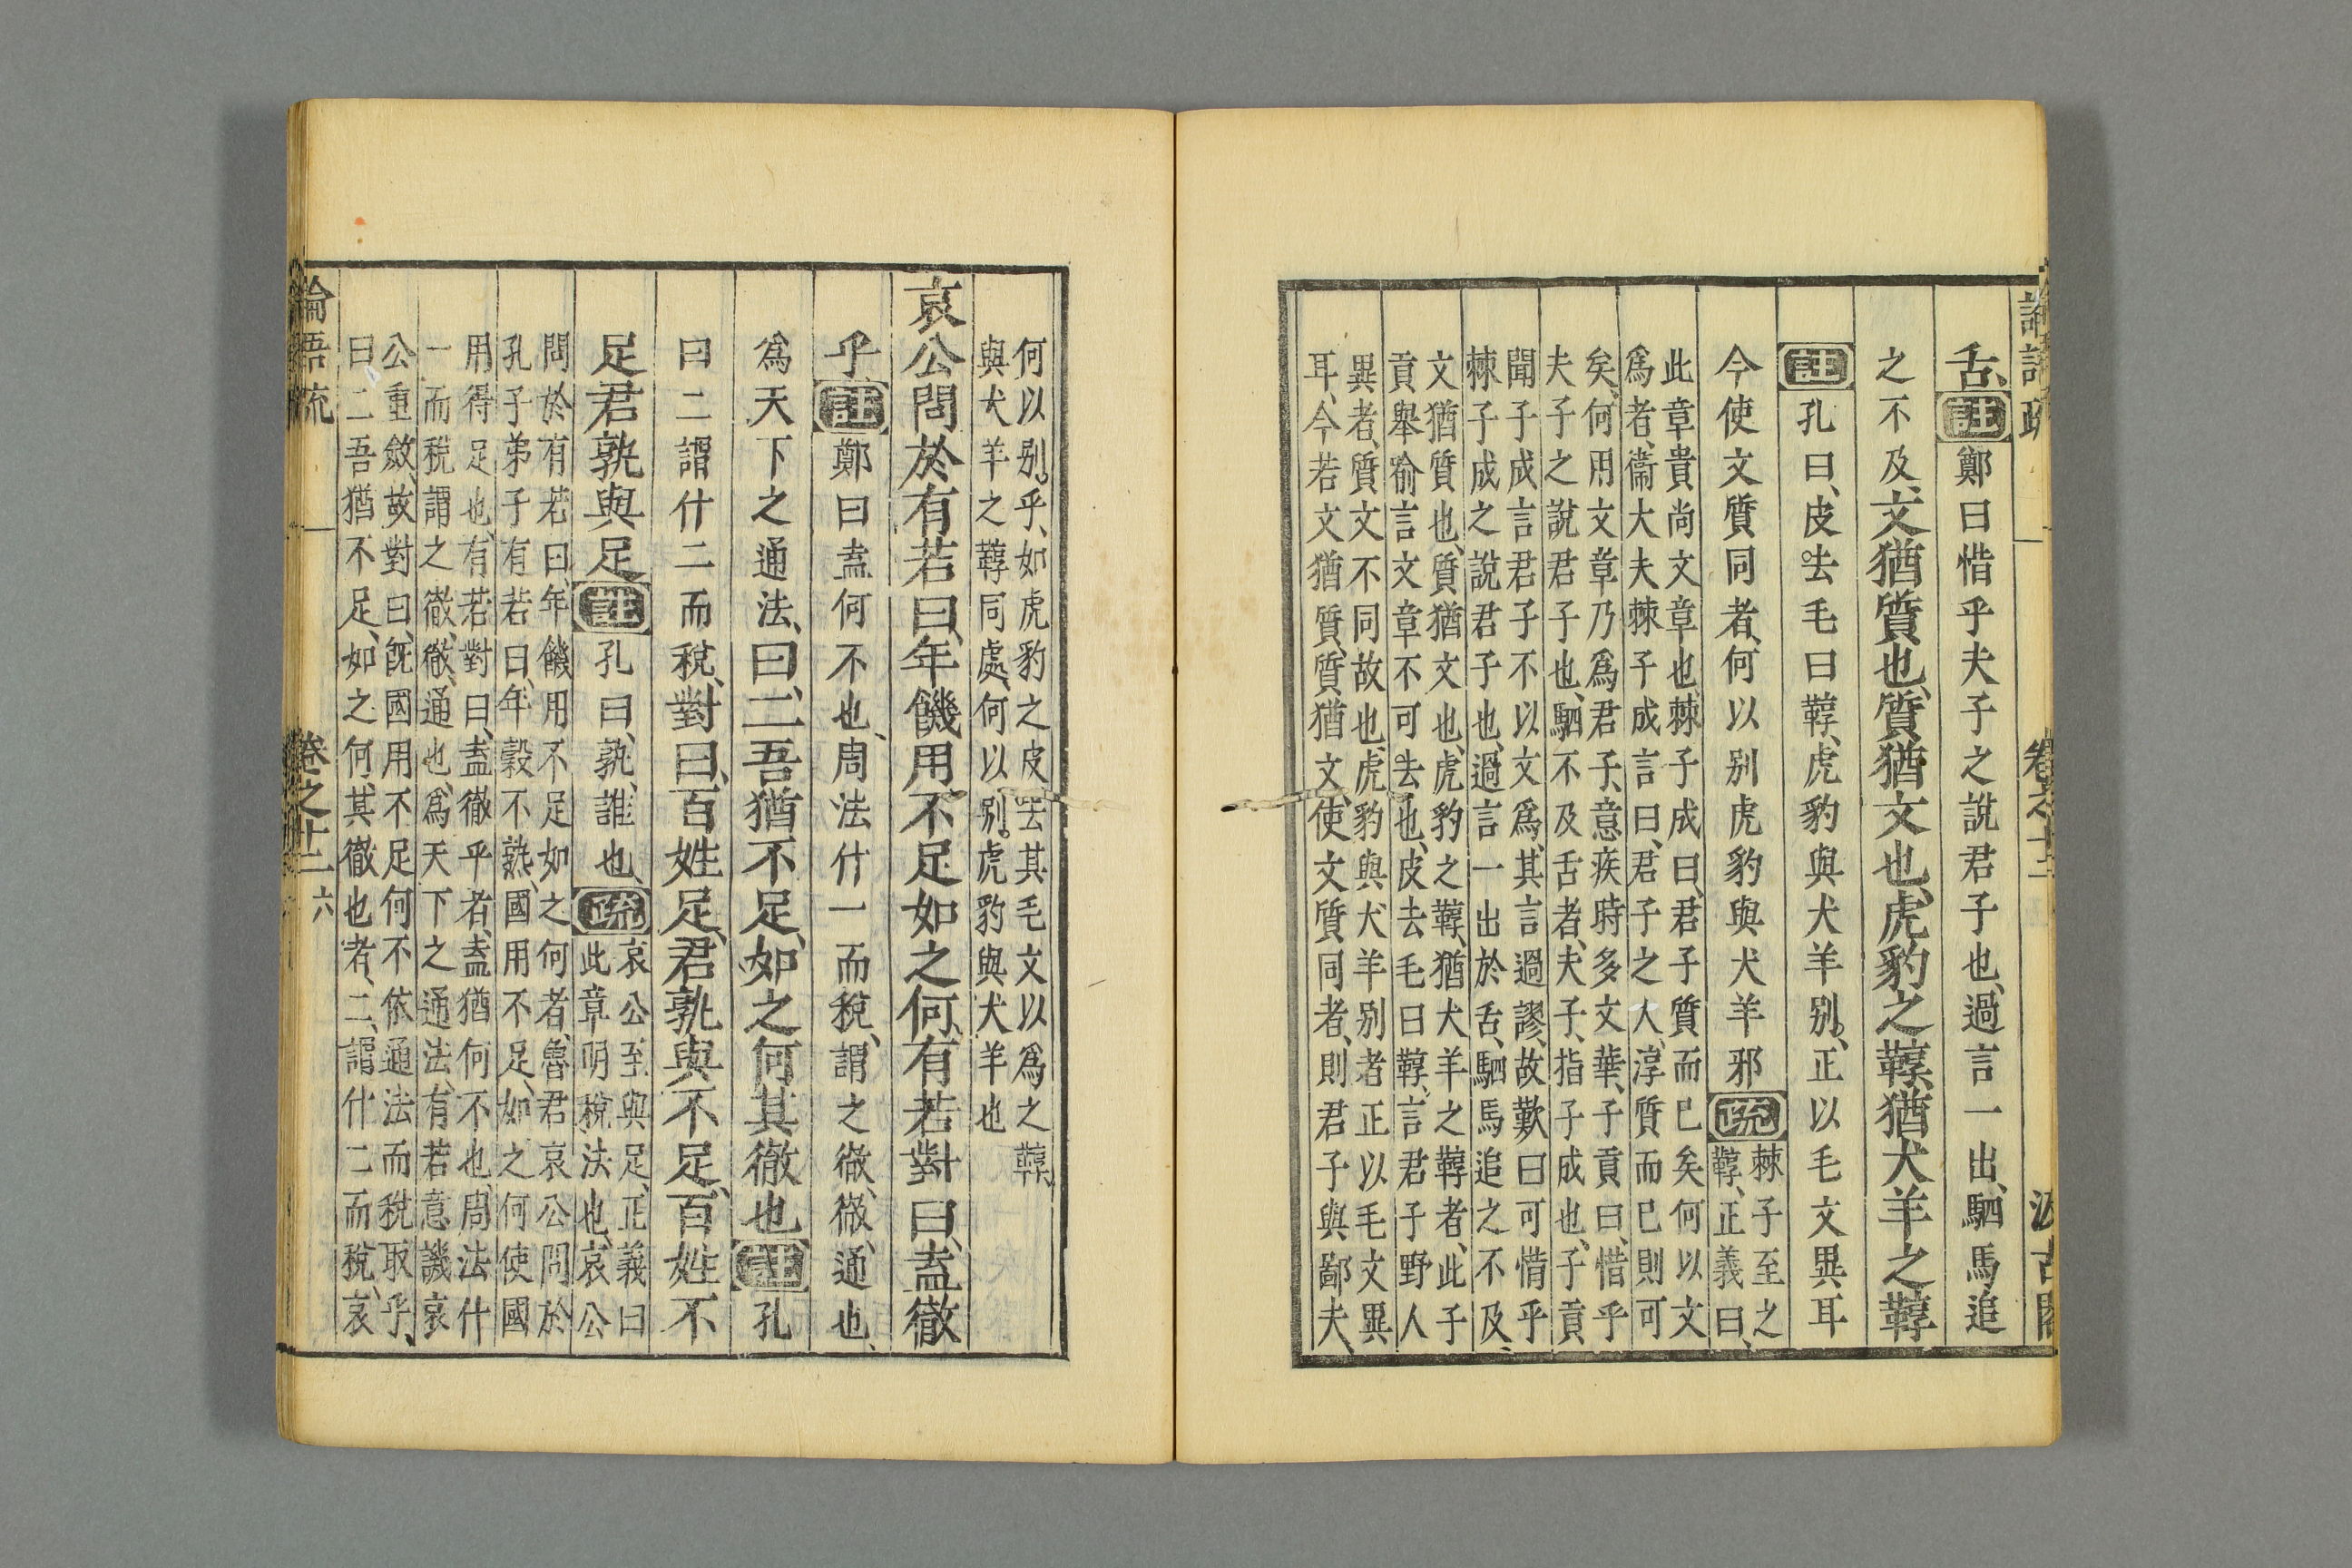 卷之十二
汲古閣
舌、註鄭曰惜乎夫子之說君子也、過言一出、駟馬追
之不及、文猶質也、質猶文也、虎豹之鞹、猶犬羊之鞹
註孔曰、皮去毛曰鞹、虎豹與犬羊别、正以毛文異耳
今使文質同者、何以别虎豹與犬羊邪疏
棘子至之
鞹、正義曰、
此章貴尚文章也、棘子成曰、君子質而已矣何以文
爲者、衞大夫棘子成言曰、君子之人、淳質而已則可
矣、何用文章乃爲君子、意疾時多文華、子貢曰、惜乎
夫子之說君子也、駟不及舌者、夫子、指子成也、子貢、
聞子成言君子不以文爲、其言過謬、故歎曰可惜乎
棘子成之說君子也、過言一出於舌、駟馬追之不及、
文猶質也、質猶文也、虎豹之鞹、猶犬羊之鞹者、此子
貢舉喻言文章不可去也、皮去毛曰鞹、言君子野人
異者、質文不同故也、虎豹與犬羊别者正以毛文異
耳、今若文猶質、質猶文、使文質同者、則君子與鄙夫、
何以别乎、如虎豹之皮去其毛文以爲之鞹、
與犬羊之鞹同處、何以别虎豹與犬羊也
哀公問於有若曰、年饑用不足如之何、有若對曰、盍徹
乎、註鄭曰盍何不也、周法什一而稅、謂之徹、徹、通也、
爲天下之通法、曰、二吾猶不足、如之何其徹也註孔
曰二謂什二而稅、對曰、百姓足、君孰與不足、百姓不
足君孰與足註孔曰、孰、誰也、疏
哀公至與足、正義曰
此章明稅法也、哀公
問於有若曰、年饑用不足如之何者、魯君哀公問於
孔子弟子有若曰、年榖不熟、國用不足、如之何使國
用得足也、有若對曰、盍徹乎者、盍猶何不也、周法什
一而稅謂之徹、徹、通也、爲天下之通法、有若意譏哀
公重斂、故對曰、旣國用不足何不依通法而稅取乎、
曰二吾猶不足、如之何、其徹也者、二、謂什二而稅、哀
論語疏
卷之十二
六